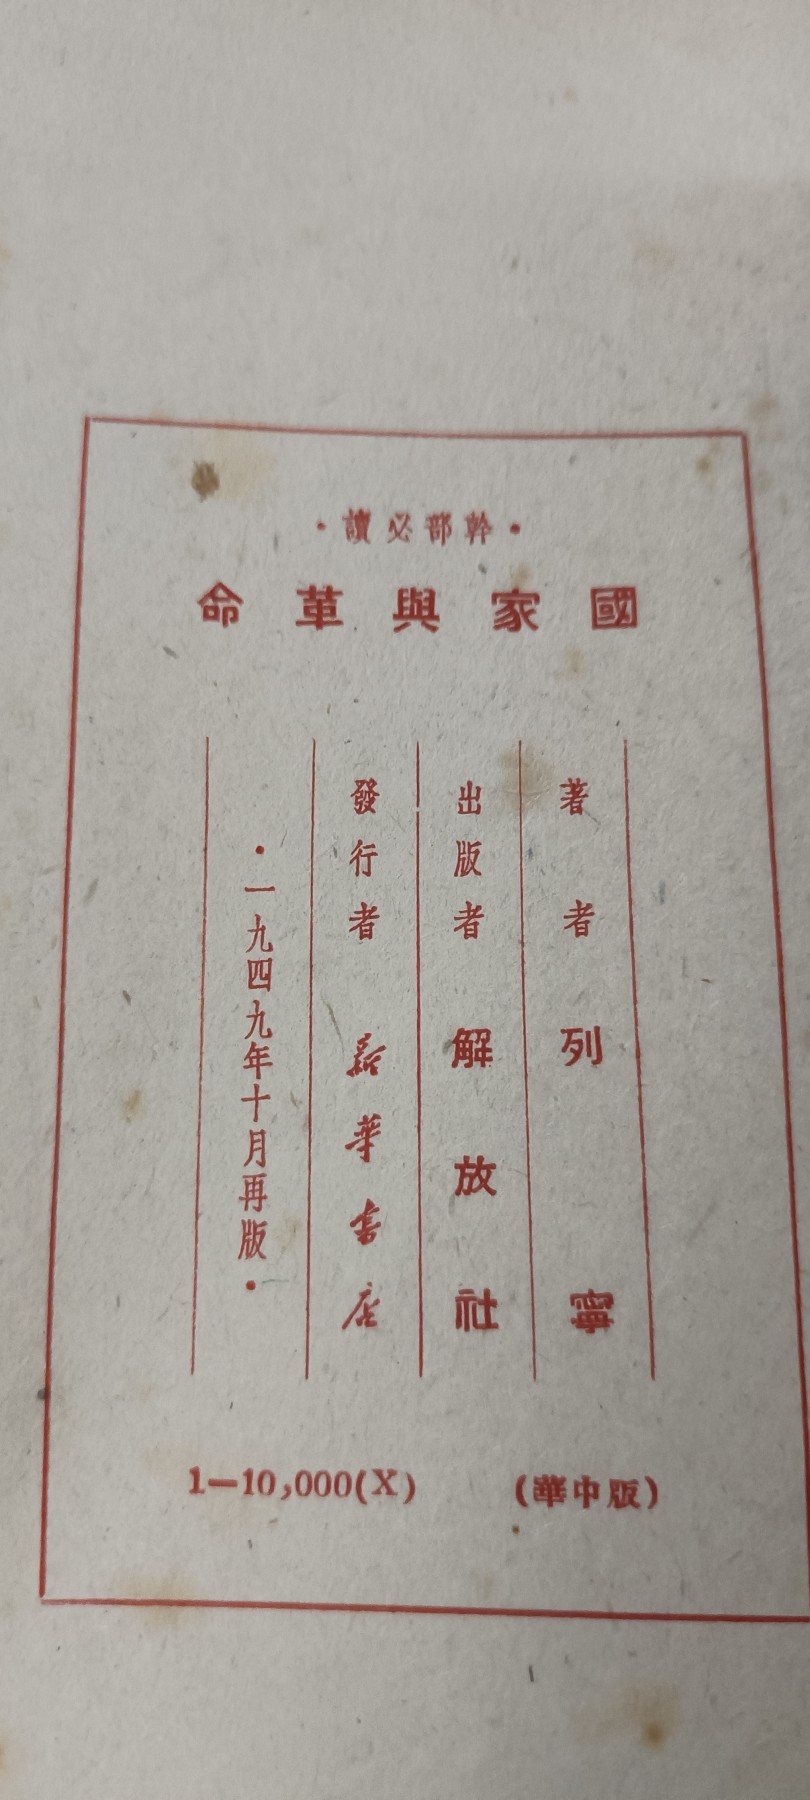 ·幹部必讀·
國家與革命
著者 列寧
出版者 解放社
發行者 新華書店
·一九四九年十月再版·
1—10,000(X) (華中版)